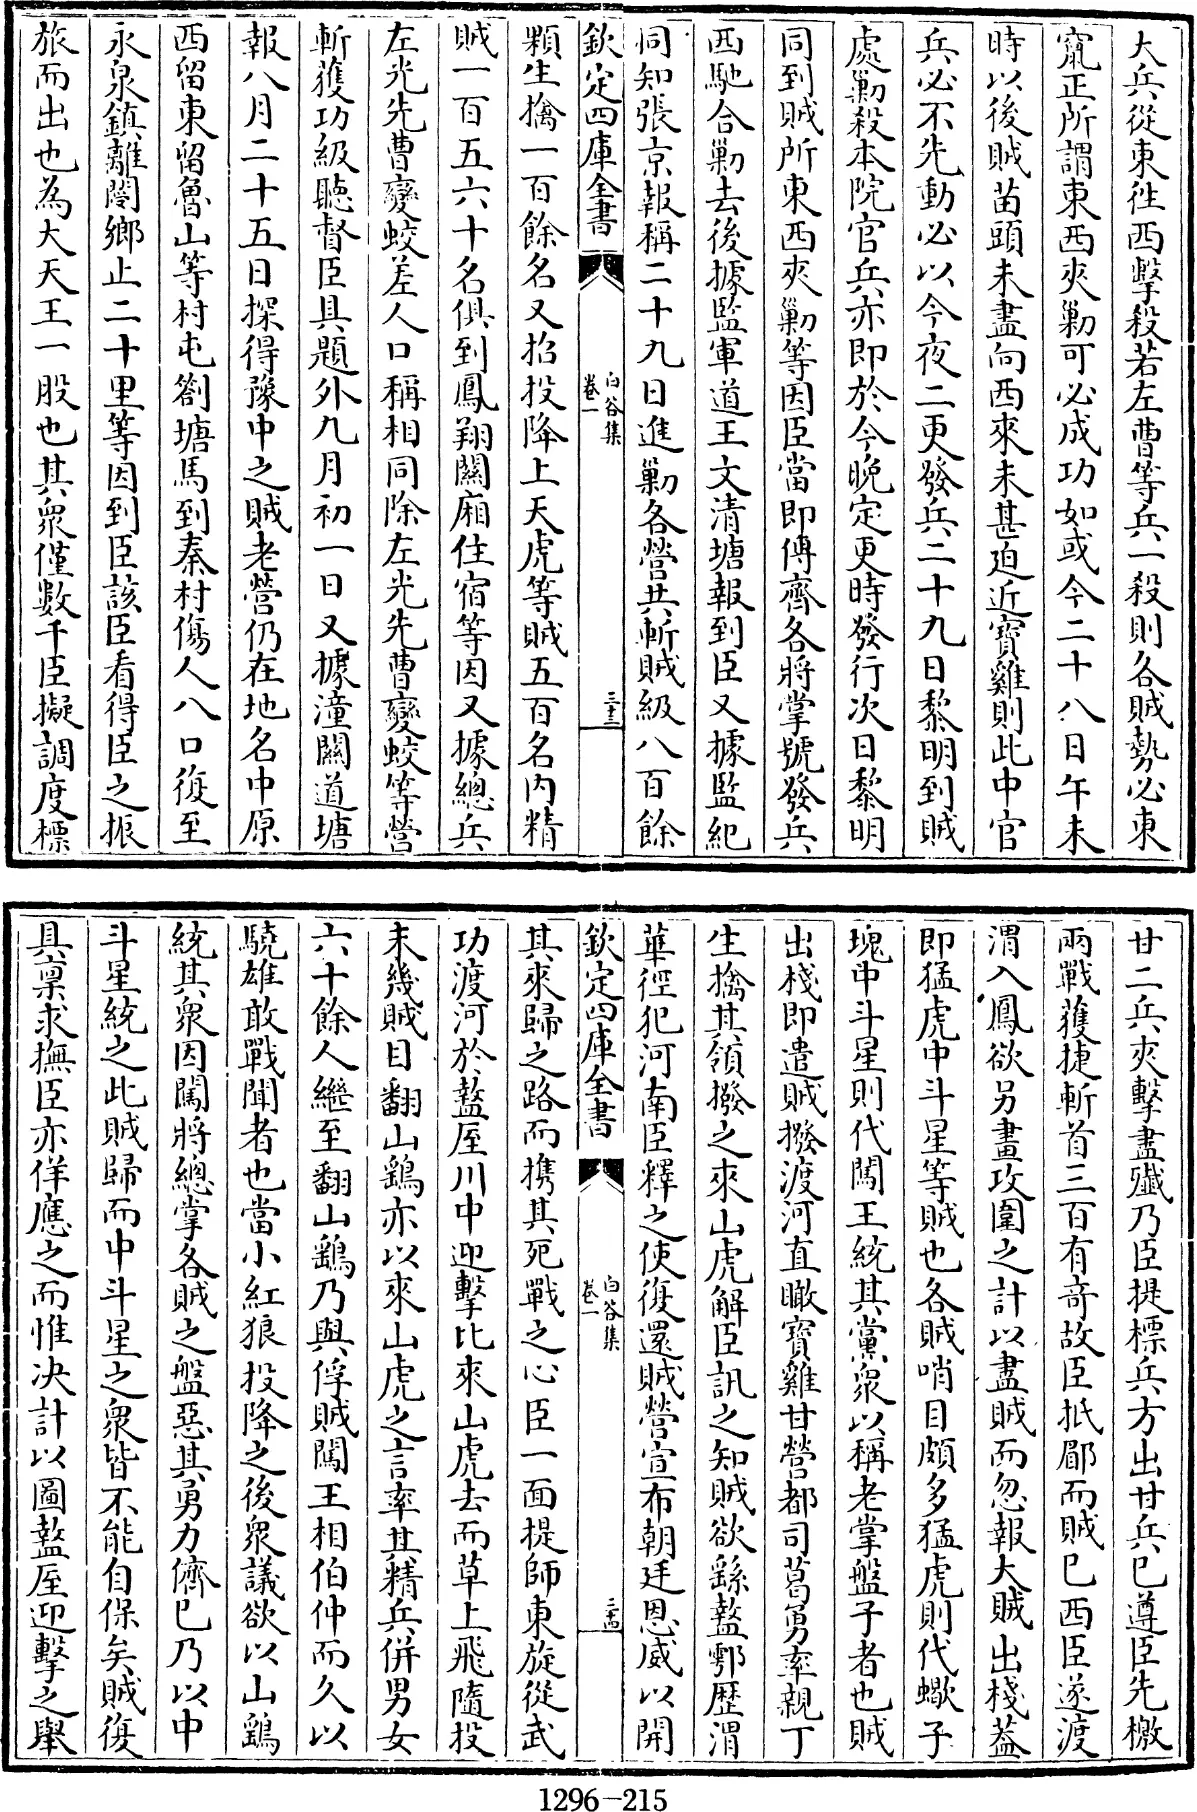 大兵從東徃西擊殺若左曹等兵一殺則各賊勢必東
竄正所謂東西夾勦可必成功如或今二十八日午未
時以後賊苗頭未盡向西來未甚迫近寶雞則此中官
兵必不先動必以今夜二更發兵二十九日黎明到賊
處勦殺本院官兵亦即於今晚定更時發行次日黎明
同到賊所東西夾勦等因臣當即傳齊各將掌號發兵
西馳合勦去後據監軍道王文清塘報到臣又據監紀
同知張京報稱二十九日進勦各營共斬賊級八百餘
欽定四庫全書
白谷集
卷一
三十三
顆生擒一百餘名又招投降上天虎等賊五百名内精
賊一百五六十名俱到鳳翔關廂住宿等因又據總兵
左光先曹變蛟差人口稱相同除左光先曹變蛟等營
斬獲功級聽督臣具題外九月初一日又據潼關道塘
報八月二十五日探得豫中之賊老營仍在地名中原
西留東留魯山等村屯劄塘馬到秦村傷人八口復至
永泉鎮離閿鄉止二十里等因到臣該臣看得臣之振
旅而出也為大天王一股也其衆僅數千臣擬調度標
甘二兵夾擊盡殲乃臣提標兵方出甘兵已遵臣先檄
兩戰獲捷斬首三百有竒故臣抵郿而賊已西臣遂渡
渭入鳳欲另畫攻圍之計以盡賊而忽報大賊出棧葢
即猛虎中斗星等賊也各賊哨目頗多猛虎則代蝎子
塊中斗星則代闖王統其黨衆以稱老掌盤子者也賊
出棧即遣賊撥渡河直瞰寶雞甘營都司葛勇率親丁
生擒其領撥之來山虎解臣訊之知賊欲繇盩鄠歴渭
華徑犯河南臣釋之使復還賊營宣布朝廷恩威以開
欽定四庫全書
白谷集
卷一
三十四
其來歸之路而携其死戰之心臣一面提師東旋從武
功渡河於盩厔川中迎擊比來山虎去而草上飛隨投
未幾賊目翻山鷂亦以來山虎之言率其精兵併男女
六十餘人繼至翻山鷂乃與俘賊闖王相伯仲而久以
驍雄敢戰聞者也當小紅狼投降之後衆議欲以山鷂
統其衆因闖將總掌各賊之盤惡其勇力儕已乃以中
斗星統之此賊歸而中斗星之衆皆不能自保矣賊復
具禀求撫臣亦佯應之而惟决計以圖盩厔迎擊之舉
1296—215